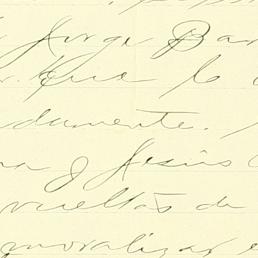 Jorge Bar
. Que lo
damente.
na y Jesús
vueltas de
moralizar e